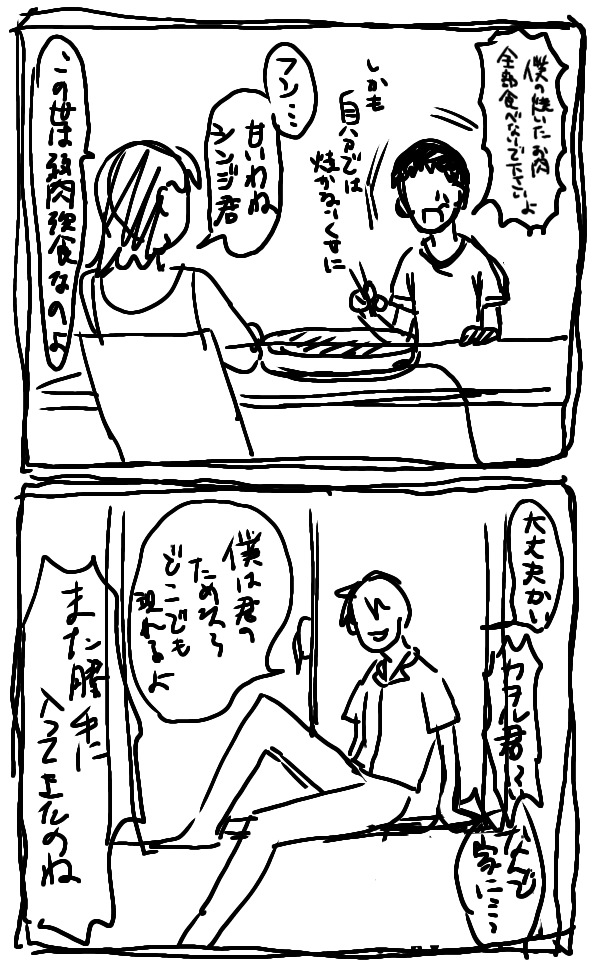 僕の焼いたお肉
全部食べないで下さいよ
しかも
自分では
焼かないくせに
フン…
甘いわね
シンジ君
この世は弱肉強食なのよ
大丈夫かい
カヲル君？！
なんで
家に……
僕は君の
ためなら
どこでも
現れるよ
また勝手に
入ってきたのね